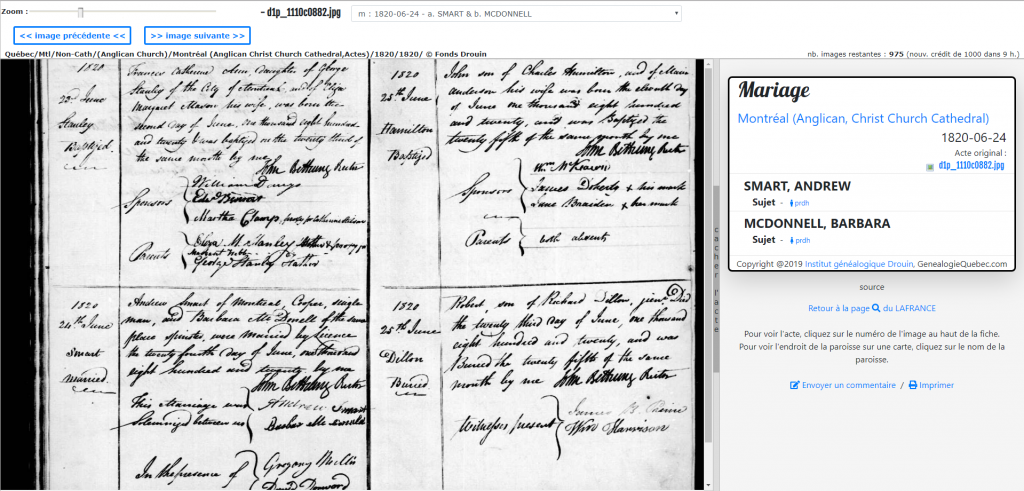 Zoom :
~ d1p_1110c0882.jpg
m : 1820-06-24 - a. SMART & b. MCDONNELL
<< image précédente <<
>> image suivante >>
Québec/Mtl/Non-Cath/(Anglican Church)/Montréal (Anglican Christ Church Cathedral,Actes)/1820/1820/ © Fonds Drouin
nb. images restantes : 975 (nouv. crédit de 1000 dans 9 h.)
1820
23d June
Stanley
Baptized.
Frances Catherine Ann, daughter of George
Stanley of the City of Montreal, and of Eliza
Margaret Mason his wife, was born the
second day of June one thousand eight hundred
and twenty & was baptized on the twenty third of
the same month by me
John Bethune Rector
Sponsors
William
Martha
Parents
Eliza M. Stanley
George Stanley Father
1820
24th June
Smart
married.
Andrew Smart of Montreal, Cooper, single
man, and Barbara McDonell of the same
place spinster, were married by License
the twenty fourth day of June, one thousand
eight hundred and twenty by me
John Bethune Rector
This Marriage was
Solemnized between us
Andrew Smart
Barbar McDonald
In the presence of
Gregory
David
1820
25th June
Hamilton
Baptized
John son of Charles Hamilton, and of Maria
Anderson his wife was born the eleventh day
of June one thousand eight hundred
and twenty, and was Baptized the
twenty fifth of the same month by me
John Bethune Rector
Sponsors
Wm McKeown
James Doherty + his mark
Jane + her mark
Parents
both absent
1820
25th June
Dillon
Buried
Robert, son of Richard Dillon, junr. Died
the twenty third day of June, one thousand
eight hundred and twenty, and was
Buried the twenty fifth of the same
month by me John Bethune Rector
witnesses present
James
Wm Harrison
cacher l'acte
Mariage
Montréal (Anglican, Christ Church Cathedral)
1820-06-24
Acte original :
d1p_1110c0882.jpg
SMART, ANDREW
Sujet - prdh
MCDONNELL, BARBARA
Sujet - prdh
Copyright @2019 Institut généalogique Drouin, GenealogieQuebec.com
source
Retour à la page du LAFRANCE
Pour voir l'acte, cliquez sur le numéro de l'image au haut de la fiche.
Pour voir l'endroit de la paroisse sur une carte, cliquez sur le nom de la
paroisse.
Envoyer un commentaire / Imprimer